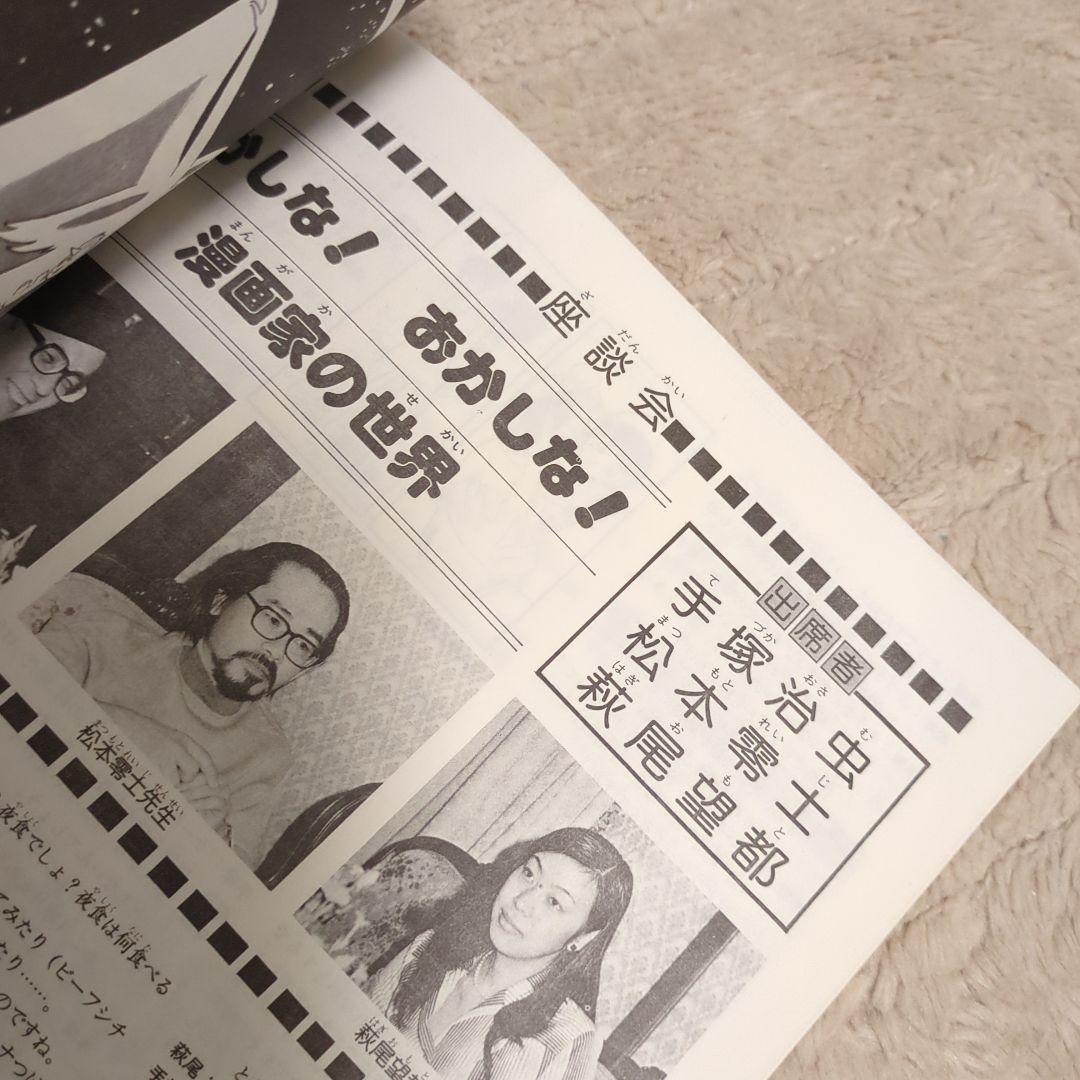 座談会
かしな！ おかしな！
漫画家の世界
出席者
手塚治虫
松本零士
萩尾望都
松本零士先生
萩尾望都
夜食でしょ？夜食は何食べる
てみたり（ビーフシチ
たり……。
のですね。
萩尾